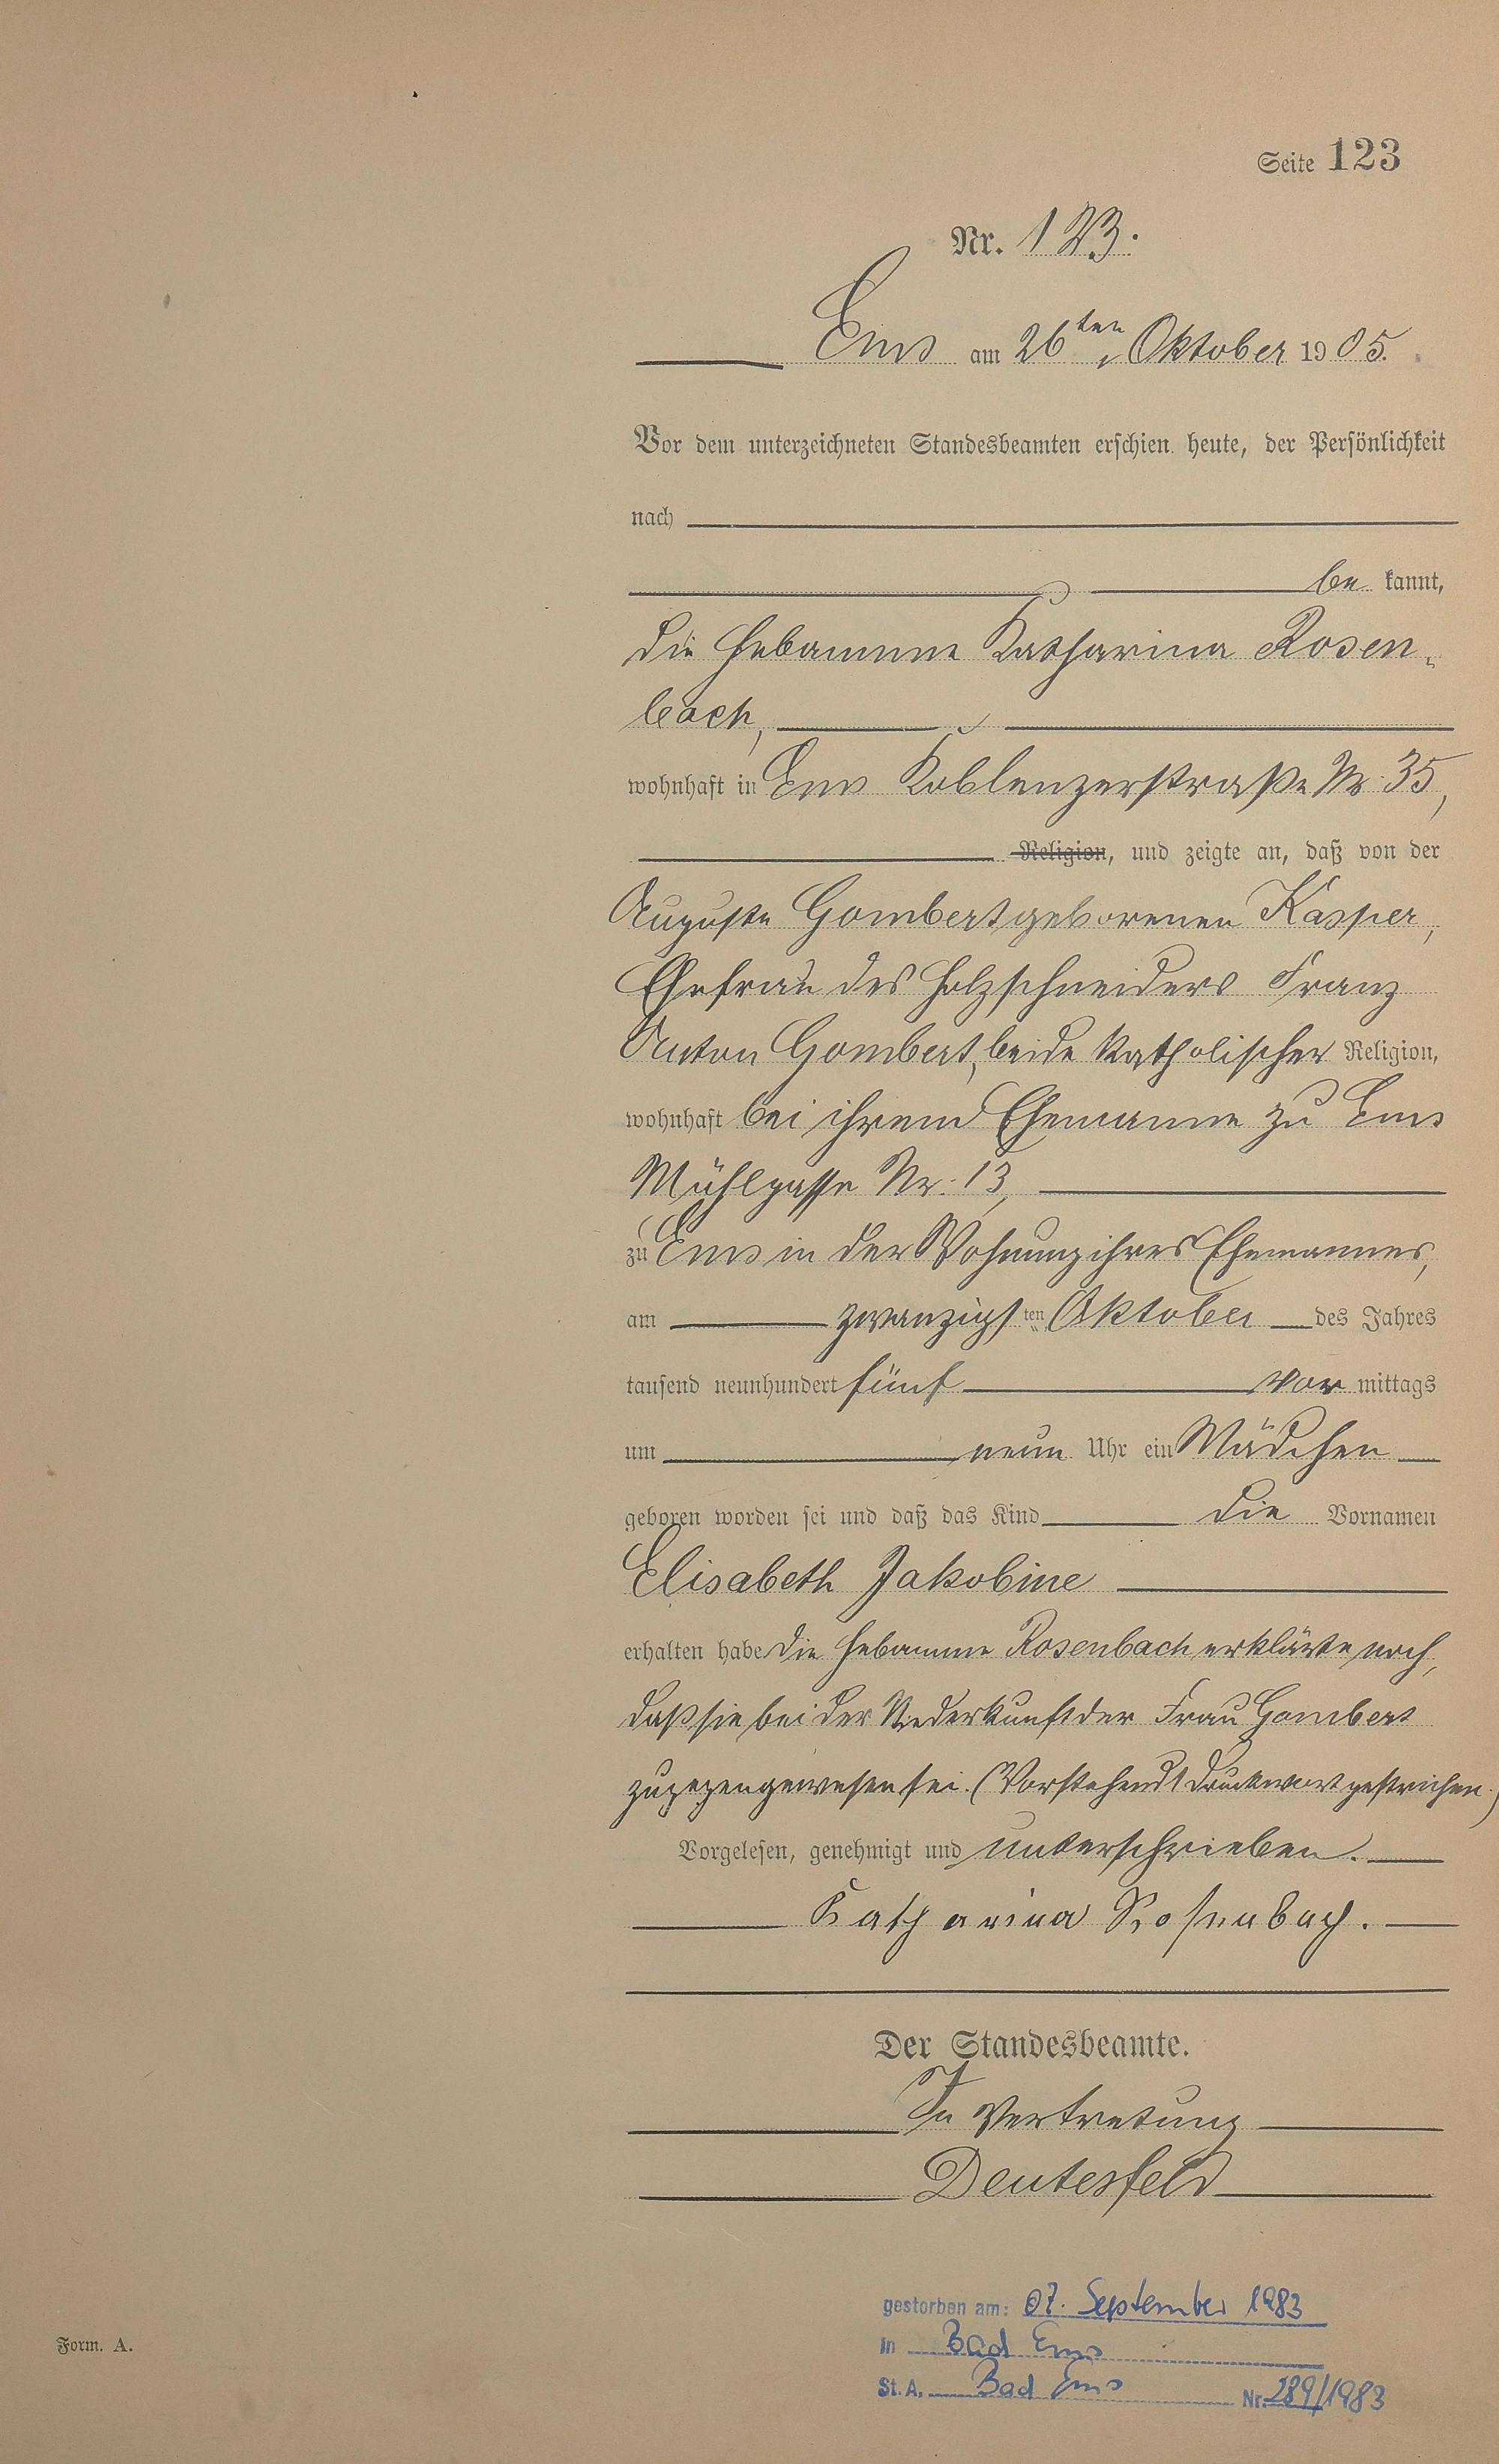 Seite 123
Nr. 123.
Ems am 26ten Oktober 1905.
Vor dem unterzeichneten Standesbeamten erschien heute, der Persönlichkeit
nach
be kannt,
die Hebamme Katharina Rosen-
bach,
wohnhaft in Ems Koblenzerstraße Nr. 35,
Religion, und zeigte an, daß von der
Auguste Gombert geborenen Kasper,
Ehefrau des Holzschneiders Franz
Anton Gombert, beide katholischer Religion,
wohnhaft bei ihrem Ehemanne zu Ems
Mühlgasse Nr. 13,
zu Ems in der Wohnung ihres Ehemannes,
am zwanzigsten Oktober des Jahres
tausend neunhundert fünf vor mittags
um neun Uhr ein Mädchen
geboren worden sei und daß das Kind die Vornamen
Elisabeth Jakobine
erhalten habe die Hebamme Rosenbach erklärte noch,
daß sie bei der Niederkunft der Frau Gombert
zugegen gewesen sei. (Vorstehend 1 Druckwort gestrichen.)
Vorgelesen, genehmigt und unterschrieben.
Katharina Rosenbach.
Der Standesbeamte.
In Vertretung
Deutesfeld
gestorben am: 07. September 1983
in Bad Ems
St. A. Bad Ems Nr. 289/1983
Form. A.